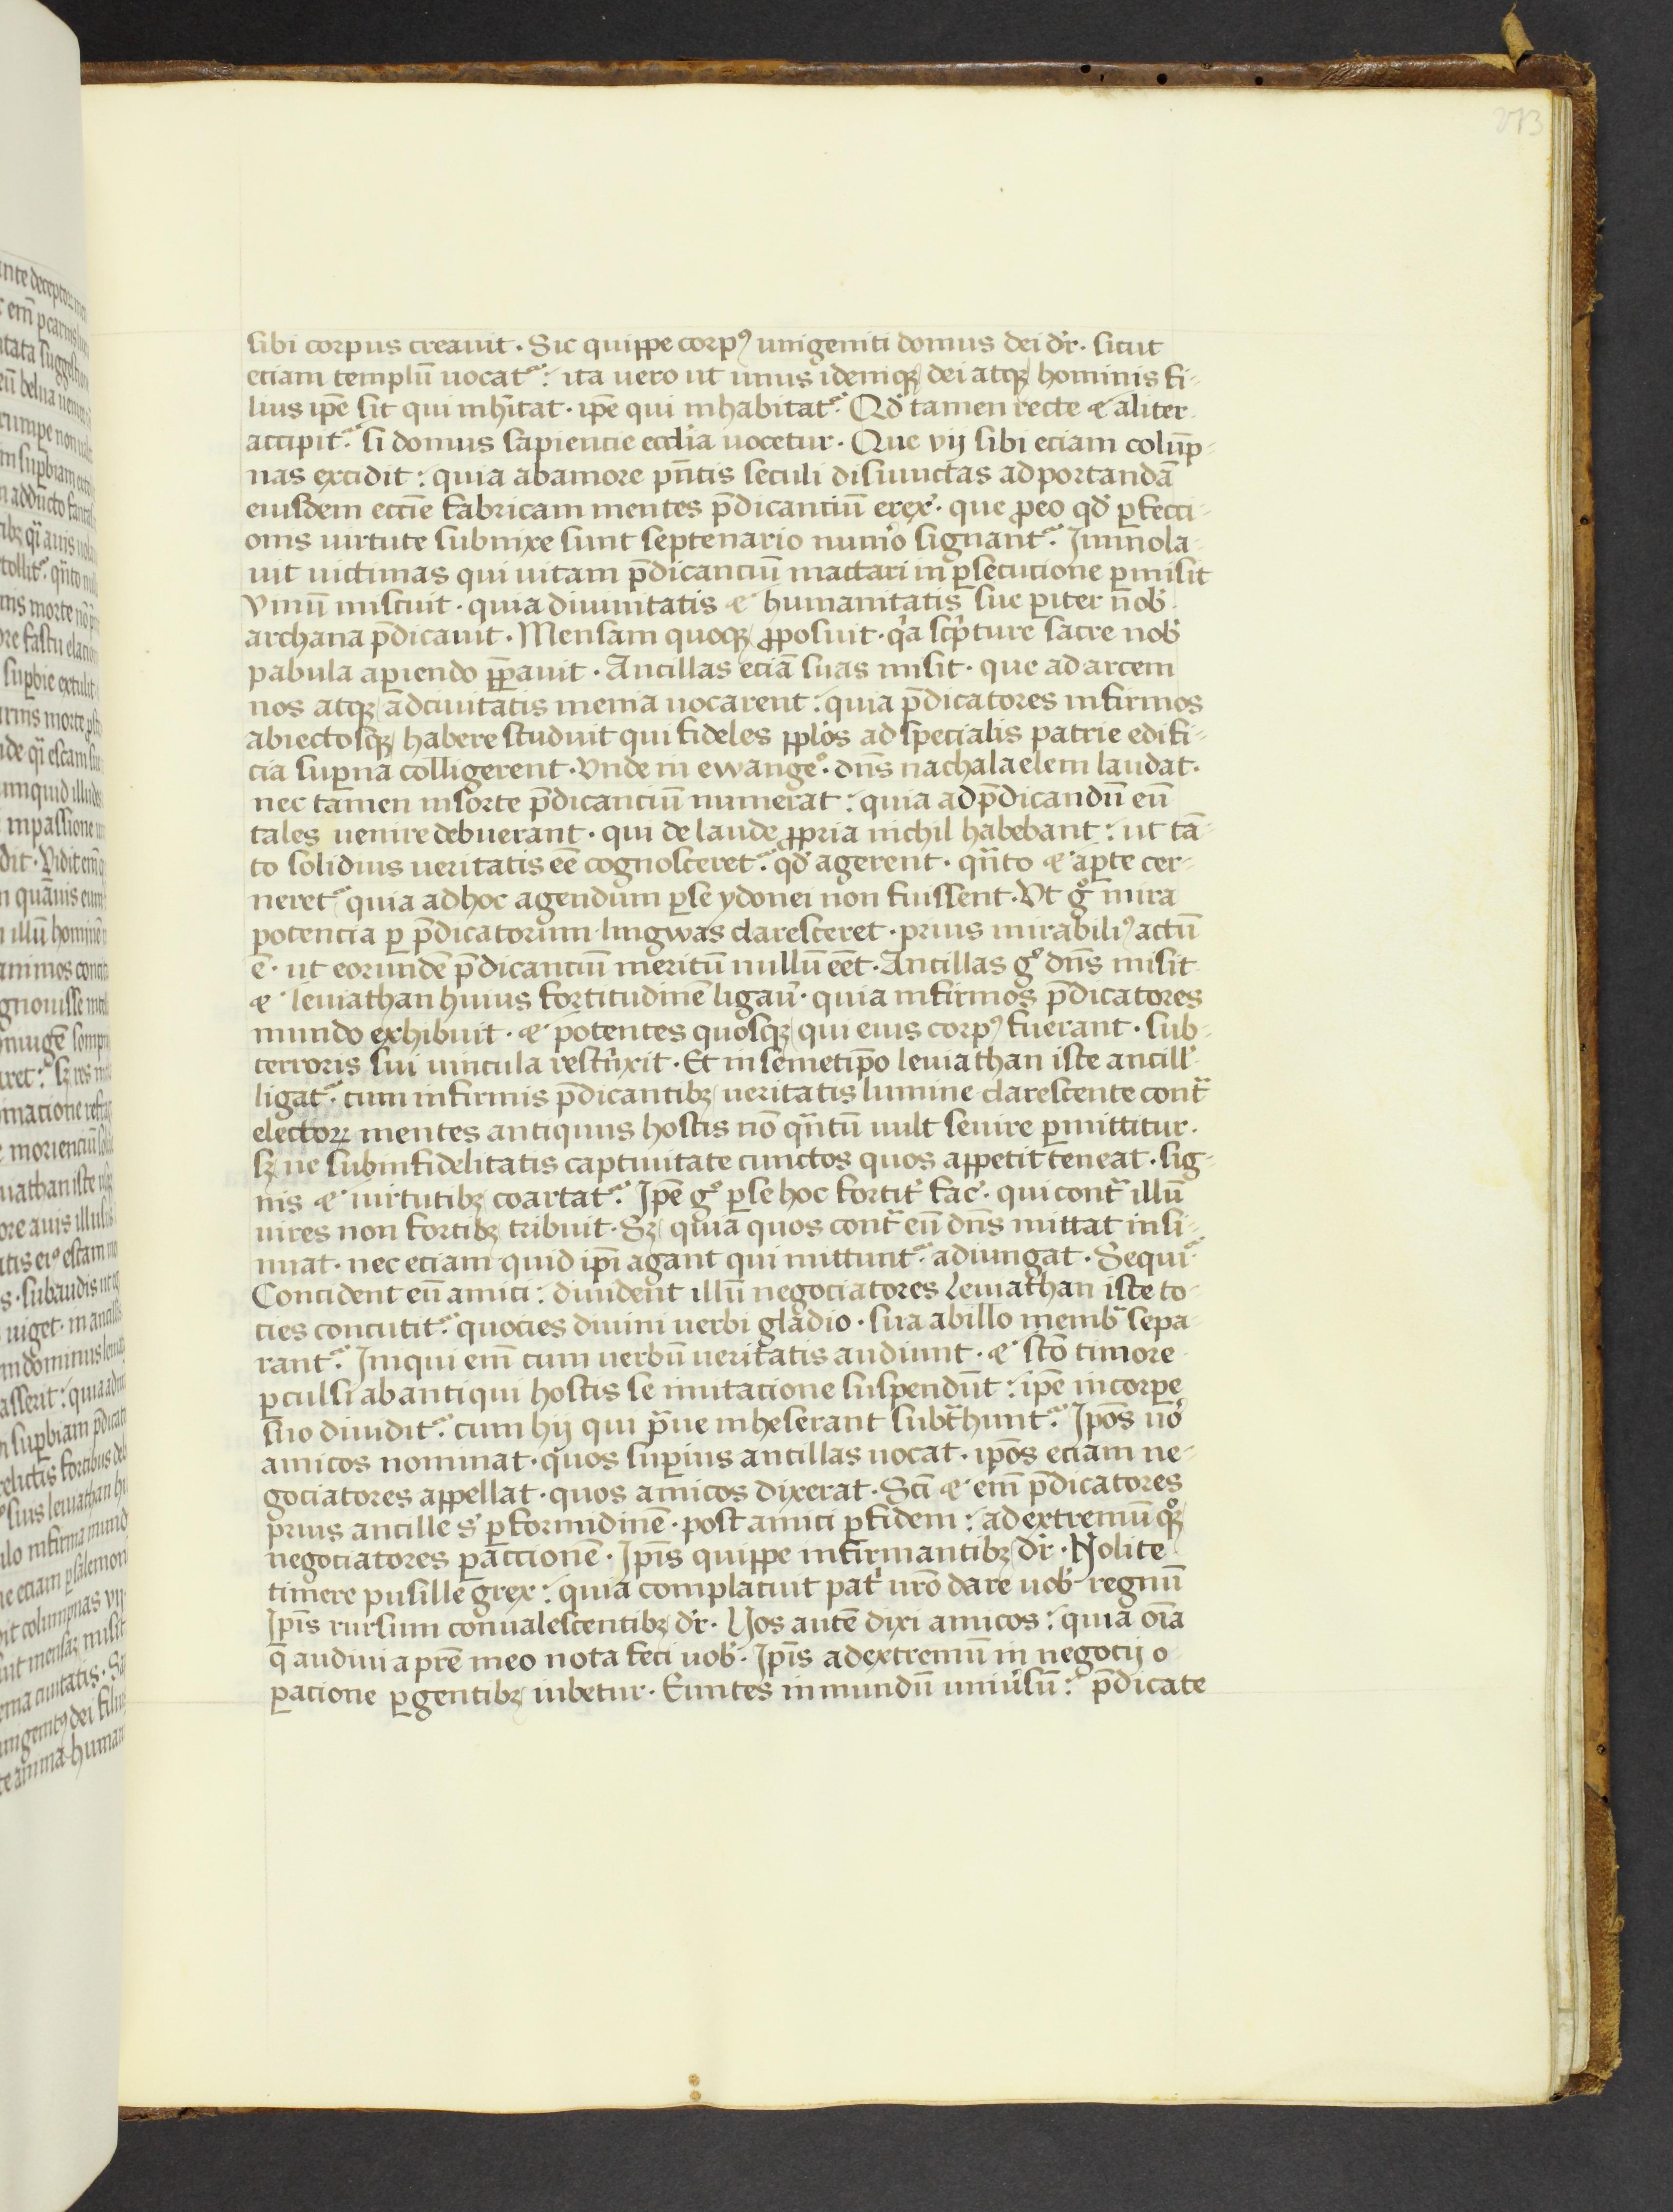 sibi corpus creauit · Sic quippe corpꝰ unigeniti domus dei dr̄ · sicut
eciam templū uocat᷑ : ita uero ut unus idemqꝫ dei atqꝫ hominis fi-
lius ip̄e sit qui inhītat · ip̄e qui inhabitat᷑ · Qd̄ tamen recte & aliter
accipit᷑ · si domus sapiencie eccl̄ia uocetur · Que vij sibi eciam colūp-
nas excidit : quia abamore pn̄tis seculi disiunctas adportandā
eiusdem eccīe fabricam mentes p̄dicanciū erex̄ · que ꝓeo qd̄ ꝑfecci-
onis uirtute subnixe sunt septenario num̄o signant᷑ · Immola-
uit uictimas qui uitam p̄dicanciū mactari in ꝑsecucione ꝑmisit
Vinū miscuit · quia diuinitatis & humanitatis sue ꝑiter nob̄
archana p̄dicauit · Mensam quoqꝫ ꝓposuit · qa scpture sacre nob̄
pabula aꝑiendo p̄ꝑauit · Ancillas eciā suas misit · que ad arcem
nos atqꝫ adciuitatis menia uocarent : quia p̄dicatores infirmos
abiectosqꝫ habere studuit qui fideles pplōs ad specialis patrie edifi-
cia suꝑna colligerent · Vnde in ewangeº · dn̄s nachalaelem laudat ·
nec tamen insorte p̄dicanciū numerat : quia adp̄dicandū eū
tales uenire debuerant · qui de laude ꝓpria nichil habebant : ut tā-
to solidius ueritatis eē cognosceret᷑ · qd̄ agerent · qn̄to & aꝑte cer-
neret᷑ quia adhoc agendum ꝑse ydonei non fuissent · Vt gº mira
potencia ꝑ p̄dicatorum lingwas claresceret · prius mirabiliꝰ actū
ē · ut eorundē p̄dicanciū meritū nullū eēt · Ancillas gº dn̄s misit
& leuiathan huius fortitudinē ligau̅ · quia infirmos p̄dicatores
mundo exhibuit · & potentes quosqꝫ qui eius corpꝰ fuerant · sub-
terroris sui uincula restrixit · Et in semetip̄o leuiathan iste ancill̄
ligat᷑ · cum infirmis p̄dicantibꝫ ueritatis lumine clarescente cont
electoꝝ mentes antiquus hostis nō qn̄tū uult seuire ꝑmittitur ·
sꝫ ne subinfidelitatis captiuitate cunctos quos appetit teneat · sig-
nis & uirtutibꝫ coartat᷑ · Ip̄e gº ꝑse hoc fortit̄ fac̄ · qui cont illū
uires non fortibꝫ tribuit · Sꝫ quia quos cont eū dn̄s mittat insi-
nuat · nec eciam quid ip̄i agant qui mittunt᷑ adiungat · Sequi᷑
Concident eū amici : diuident illū negociatores Leuiathan iste to-
cies concutit᷑ · quocies diuini uerbi gladio · sua abillo memb sepa-
rant᷑ · Iniqui em̄ cum uerbū ueritatis audiunt · & scō timore
ꝑculsi abantiqui hostis se imitacione suspendūt : ip̄e incorpe
suo diuidit᷑ · cum hij qui p̄ue inheserant subt̄hunt᷑ · Ip̄os uō
amicos nominat · quos suꝑius ancillas uocat · ip̄os eciam ne-
gociatores appellat · quos amicos dixerat · Scī & em̄ p̄dicatores
prius ancille s̄ ꝑ formidinē · post amici ꝑfidem : ad extremū qꝫ
negociatores ꝑaccionē · Ip̄is quippe infirmantibꝫ dr̄ · Nolite
timere pusille grex : quia complacuit pat̄ uro dare uob̄ regnū
Ip̄is rursum conualescentibꝫ dr̄ · Uos autē dixi amicos : quia oīa
q̄ audiui a pr̄e meo nota feci uob̄ · Ip̄is adextremū in negocij o-
ꝑacione ꝑgentibꝫ iubetur · Euntes inmundū uniu̅sū : p̄dicate